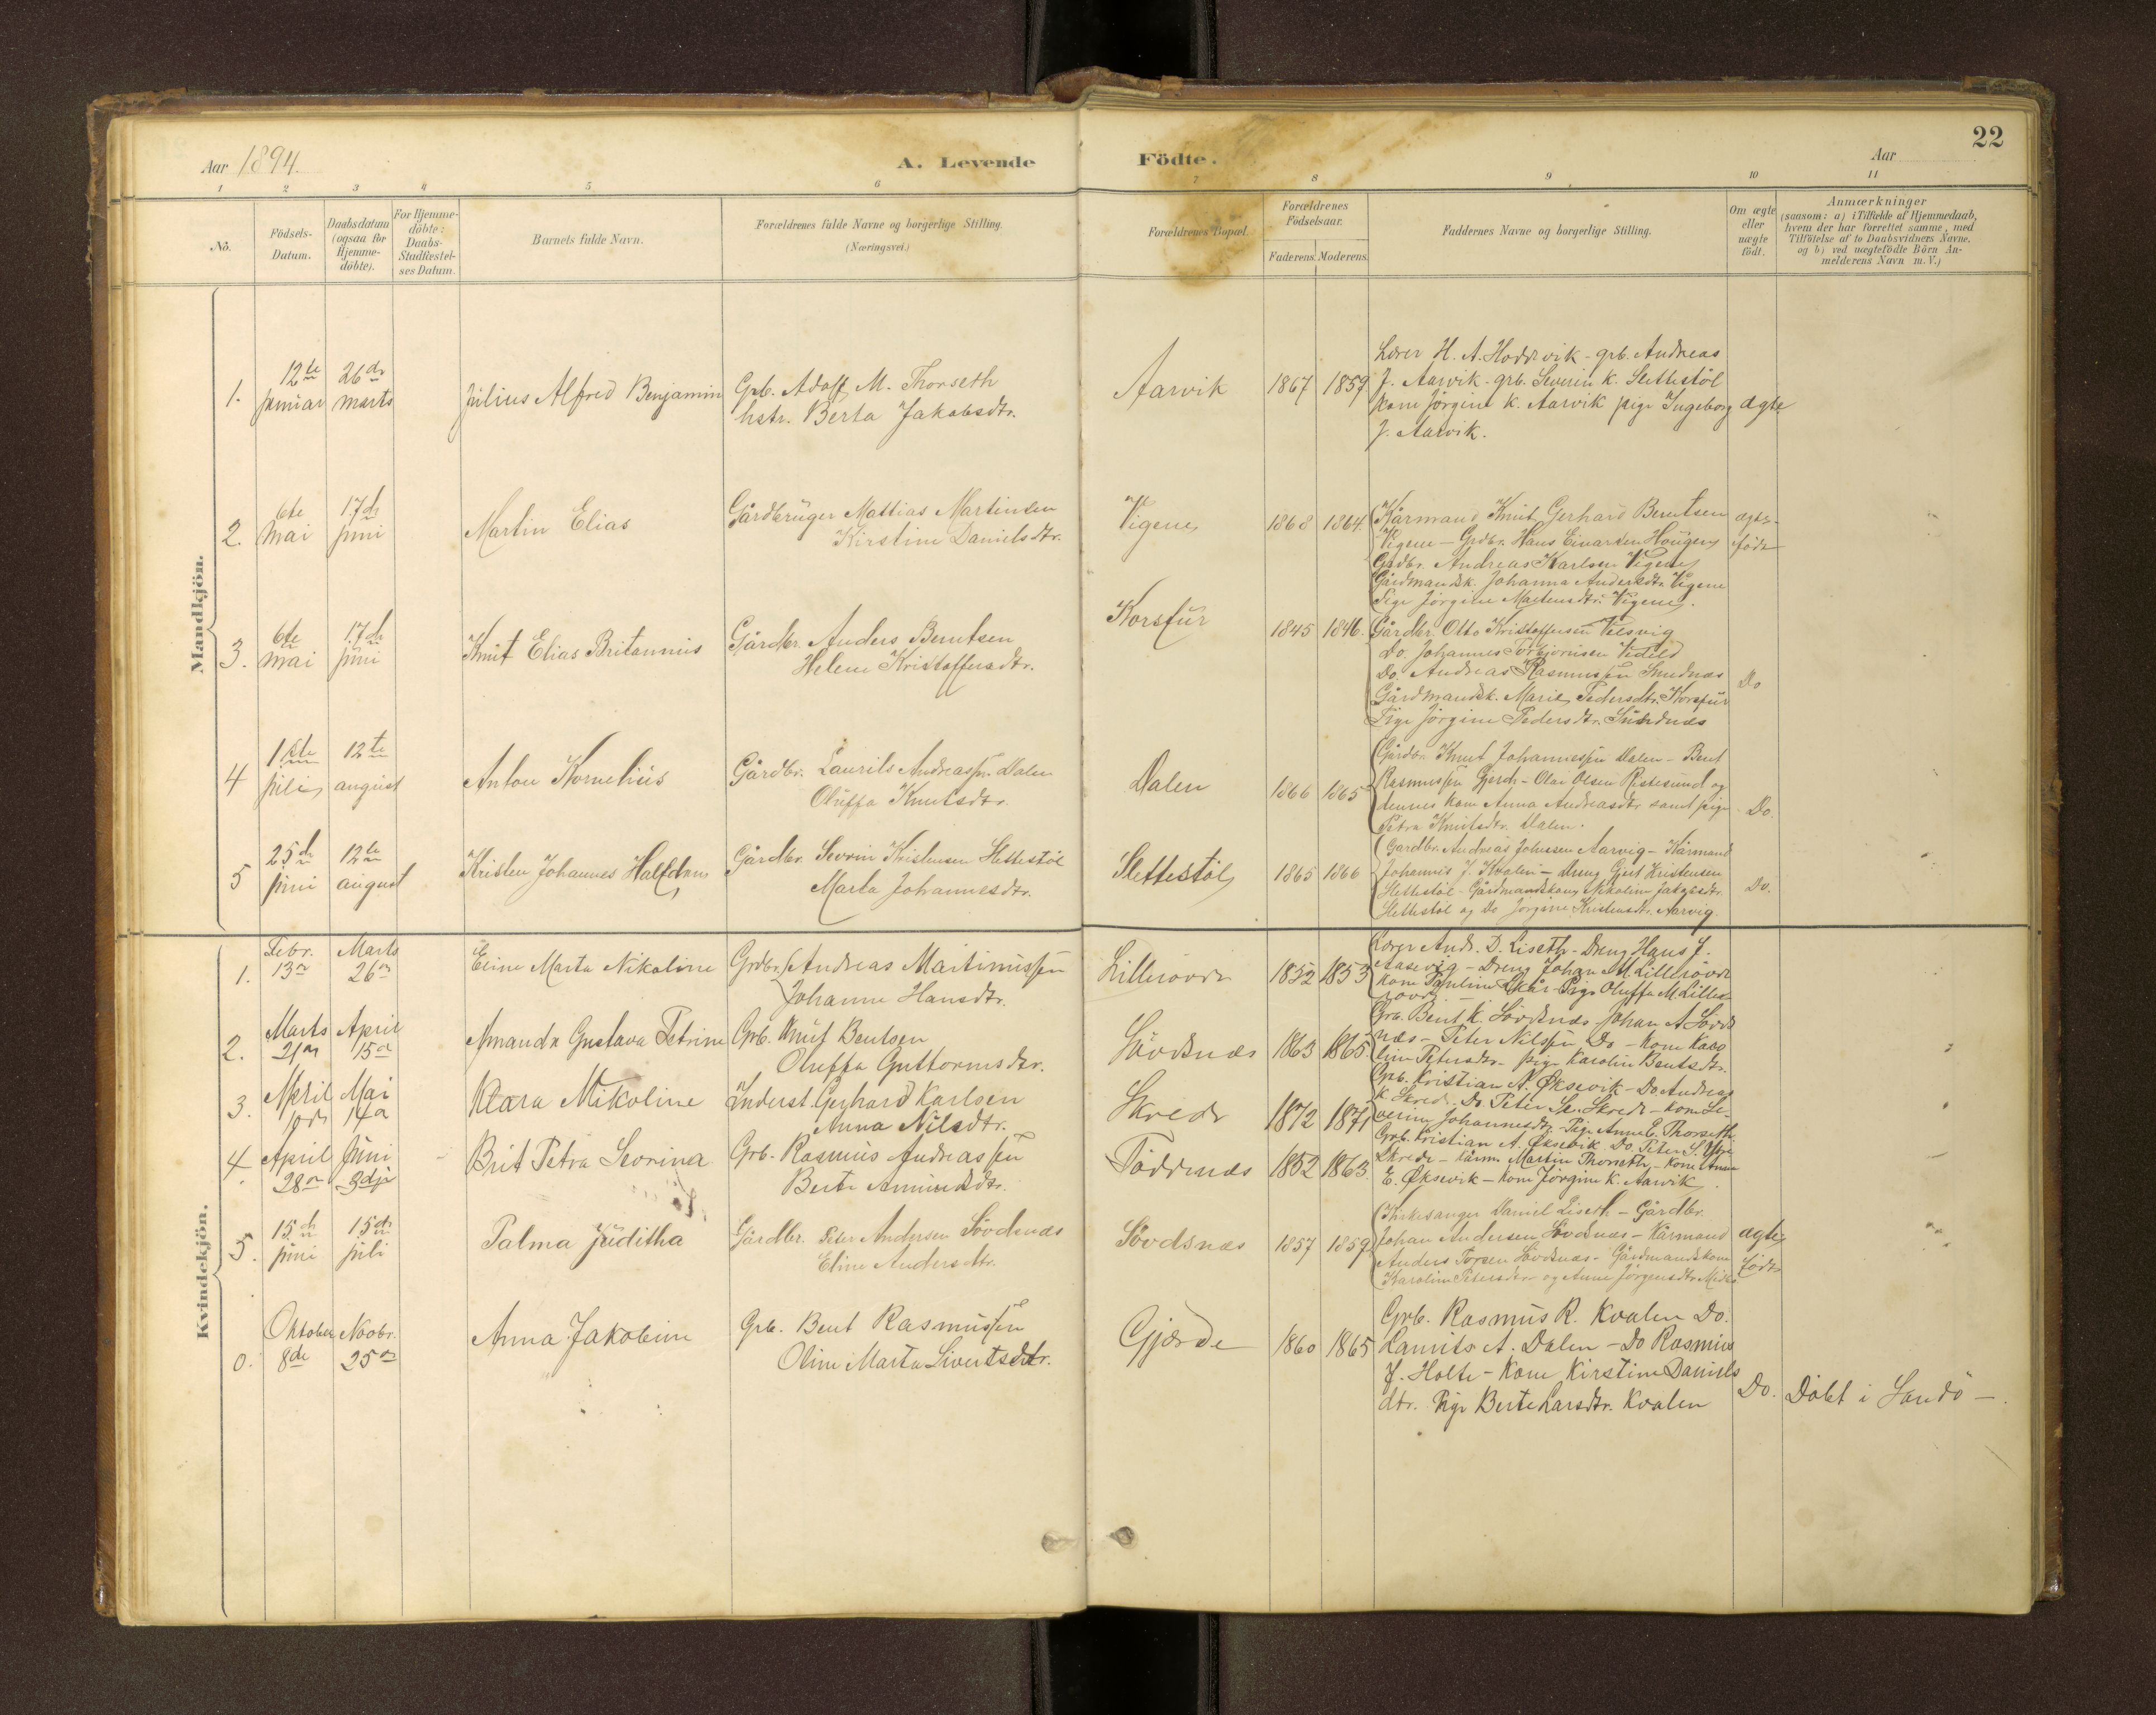 22
Aar 1894. A. Levende Födte. Aar
1 2 3 4 5 6 7 8 9 10 11
No.
Födsels-Datum.
Daabsdatum (ogsaa for Hjemme-döbte).
For Hjemme-döbte: Daabs-Stadfæstel-ses Datum.
Barnets fulde Navn.
Forældrenes fulde Navne og borgerlige Stilling.
(Næringsvei.)
Forældrenes Bopæl.
Forældrenes Födselsaar.
Faderens. Moderens.
Faddernes Navne og borgerlige Stilling.
Om ægte eller uægte födt.
Anmærkninger
(saasom: a) i Tilfælde af Hjemmedaab,
hvem der har forrettet samme, med
Tilföielse af to Daabsvidners Navne,
og b) ved uægtefödte Börn An-
melderens Navn m. V.)
Mandkjön.
1. 12te januar 26de marts Julius Alfred Benjamin
Grb. Adolf M. Thorseth
hstr. Berta Jakobsdtr.
Aarvik 1867 1859
Lærer H. A. Hoddevik - grb. Andreas
J. Aarvik - grb. Severin K. Slettestöl
kone Jörgine K. Aarvik pige Ingeborg
J. Aarvik.
ægte
2. 6te mai 17de juni Martin Elias
Gårdbruger Mattias Martinsen
Kirstine Danielsdtr.
Vigene 1868 1864.
Kårmand Knut Gerhard Berntsen
Vigene - Grdbr. Hans Einarsen Haugen
Grdbr. Andreas Karlsen Vigene
Gårdmandsk. Johanna Andersdtr. Vigene
Pige Jörgine Martensdtr. Vigene.
ægte-
födt
3. 6te mai 17de juni Knut Elias Britannius
Gårdbr. Anders Berntsen
Helene Kristoffersdtr.
Korsfur 1845 1846.
Gårdbr. Otto Kristoffersen
Do. Johannes Torbjörnsen Vedeld
Do. Andreas Rasmussen
Gårdmandsk. Marie Pedersdtr. Korsfur
Pige Jörgine Pedersdtr.
Do
4 1ste juli 12te august Anton Kornelius
Gårdbr. Laurits Andreassen Dalen
Oluffa Knutsdtr.
Dalen 1866 1865
Gårdbr. Knut Johannessen Dalen - Bent
Rasmussen Gjerde - Olav Olsen Ristesund og
dennes kone Anna Andreasdtr. samt pige
Petra Knutsdtr. Dalen.
Do.
5 25de juni 12te august Kristen Johannes Halfdan
Gårdbr. Sevrin Kristensen Slettestöl
Marta Johannesdtr.
Slettestöl 1865 1866
Gardbr. Andreas Johnssen Aarvig - Kårmand
Johannes J. Kvalen - Dreng Gjert Kristensen
Slettestöl - Gårdmandskone Nikoline Jakobsdtr.
Slettestöl og Do Jörgine Kristensdtr. Aarvig.
Do.
Kvindekjön.
1. Febr. 13de Marts 26de Eline Marta Nikoline
Grdbr. Andreas Martinussen
Johanne Hansdtr.
Lillerövde 1852 1853
Lærer Andr. D. Liseth - Dreng Hans J.
Aasevig - Dreng Johan M. Lillerövde
Kone Pauline Skår - Pige Oluffa M. Lille-
rövde
2. Marts 21de April 15de Amanda Gustava Petrine
Grb. Knut Bentsen
Oluffa Guttormsdtr.
Sövdsnæs 1863 1865.
Grb. Bent K. Sövdsnæs Johan A. Sövds
næs - Peter Nilssen Do - Kone Karo
line Petersdtr. - pige Karolin Bentsdtr.
3. April 10de Mai 14de Klara Mikoline
Inderst Gerhard Karlsen
Anna Nilsdtr.
Skrede 1872 1871
Grb. Kristian A. Øksevik - Do Andreas
K. Skrede Do. Peter Se. Skrede - Kone Se-
verine Johannesdtr. - Pige Anne E. Thorseth
4. April 28de Juni 3dje Brit Petra Sevrina
Grb. Rasmus Andreassen
Berte Amundsdtr.
Töddenæs 1852 1863.
Grb. Kristian A. Øksevik Do. Peter S.
Skrede - Kårm. Martin Thorseth - Kone Anne
E. Øksevik - Kone Jörgine K. Aarvik
5. 15de juni 15de juli Palma Juditha
Gårdbr. Peter Andersen Sövdsnæs
Eline Andersdtr.
Sövdsnæs 1857 1859
Kirkesanger Daniel Liseth - Gårdbr.
Johan Andersen Sövdsnæs - Kårmand
Anders Sövdsnæs - Gårdmandskone
Karoline Petersdtr. og Anne Jörgensdtr.
ægte
födt
0. Oktober 8de Novbr. 25de Anna Jakobine
Grb. Bent Rasmussen
Oline Marta Sivertsdtr.
Gjærde 1860 1865
Grb. Rasmus R. Kvalen Do.
Laurits A. Dalen - Do Rasmus
J. Holte - Kone Kirstine Daniels
dtr. Pige Berte Larsdtr. Kvalen
Do. Döbt i Sandö -